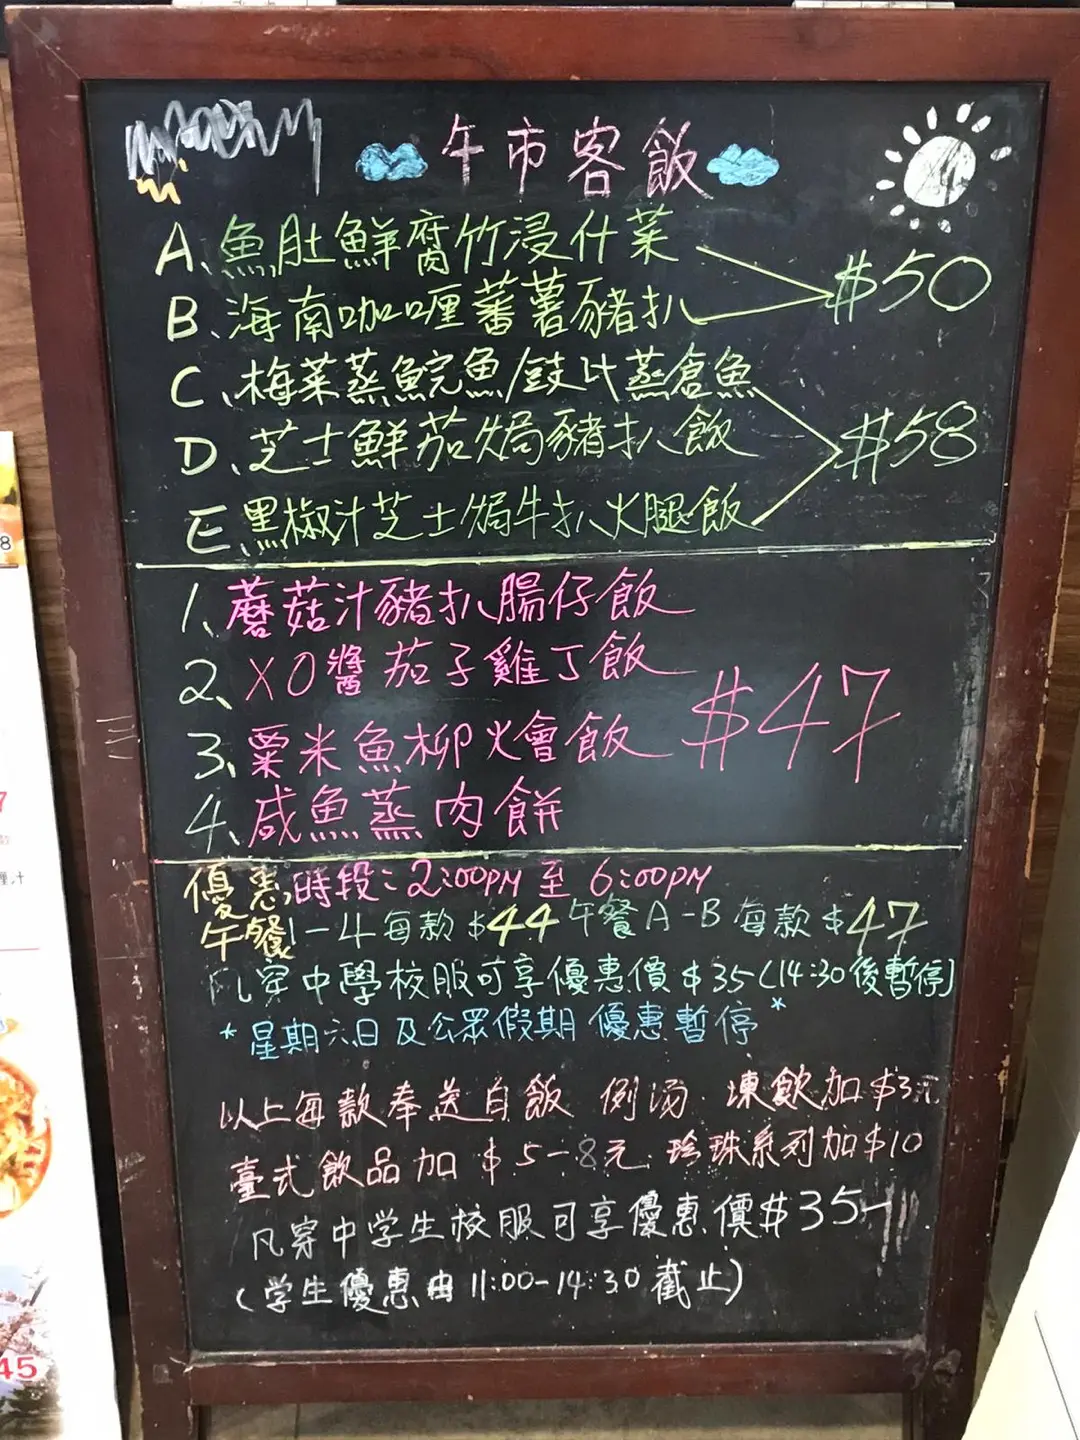 午市客飯
A、魚肚鮮腐竹浸什菜
B、海南咖喱蕃薯豬扒
$50
C、梅菜蒸鯇魚/豉汁蒸倉魚
D、芝士鮮茄焗豬扒飯
E、黑椒汁芝士焗牛扒火腿飯
$58
1、蘑菇汁豬扒腸仔飯
2、XO醬茄子雞丁飯
3、粟米魚柳燴飯
4、咸魚蒸肉餅
$47
優惠時段:2:00PM至6:00PM
午餐1-4每款$44午餐A-B每款$47
凡穿中學校服可享優惠價$35(14:30後暫停)
*星期六日及公眾假期優惠暫停*
以上每款奉送白飯 例湯.凍飲加$3元
臺式飲品加$5-8元.珍珠系列加$10
凡穿中学生校服可享優惠價$35
(学生優惠由11:00-14:30截止)
8
7
厘汁
45